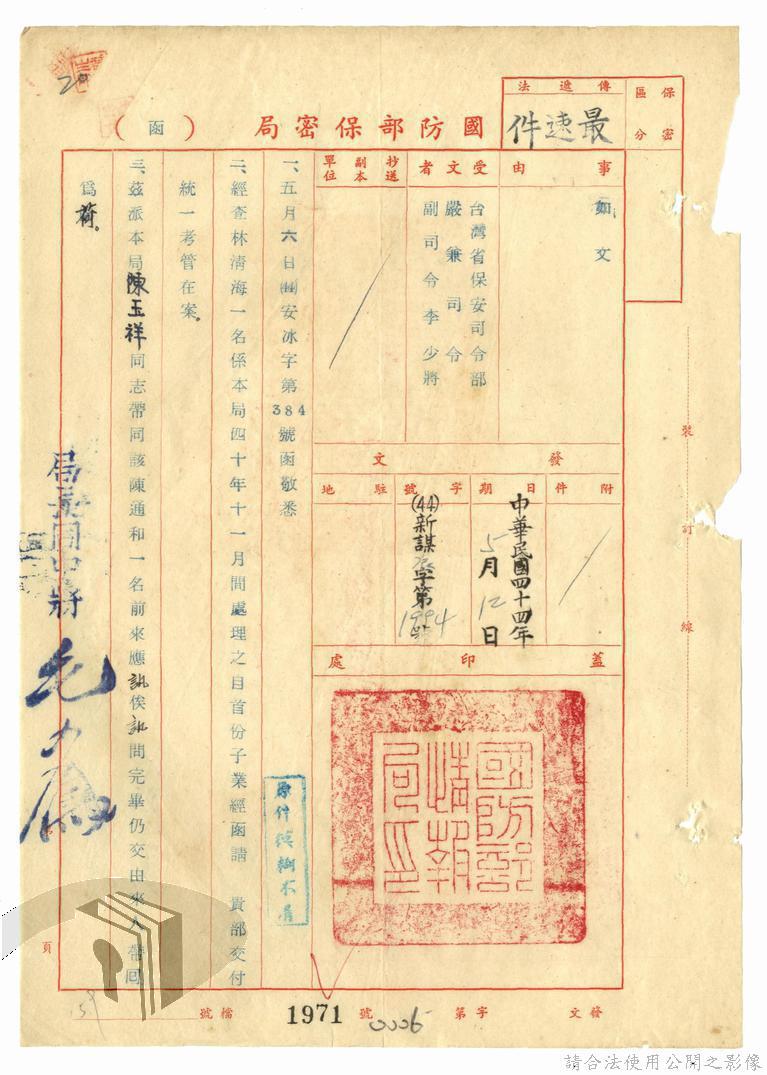 保密區分
傳遞法
最速件
國防部保密局（函）
事由
如文
受文者
台灣省保安司令部
嚴兼司令
副司令李少將
抄送副本單位
發文
附件
日期
中華民國四十四年
5月12日
字號
(44)新謀字第
1994
號
駐地
蓋印處
國防部情報局印
一、五月六日(44)安冰字第384號函敬悉
二、經查林清海一名係本局四十年十一月間處理之自首份子業經函請　貴部交付
統一考管在案。
三、茲派本局陳玉祥同志帶同該陳通和一名前來應訊俟訊問完畢仍交由來人帶回
為荷。
局長周中將
毛人鳳
原件模糊不清
裝訂線
發文
字第
0006
號
1971
檔號
頁
59
20
請合法使用公開之影像